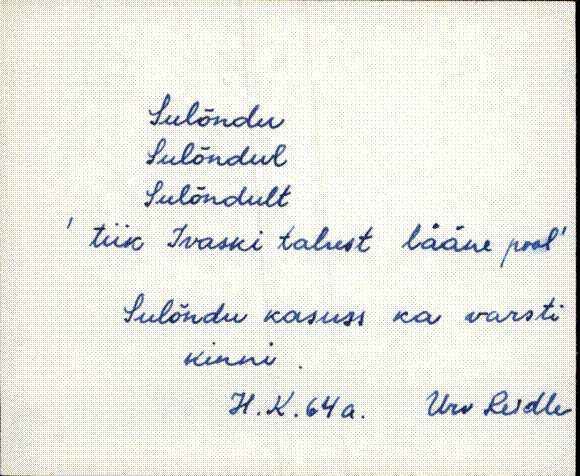 Sulõndu
Sulõndul
Sulõndult
' tiik Ivaski talust lääne pool'
Sulõndu kasuss ka varsti
kinni.
H. K. 64 a. Urv Leidle